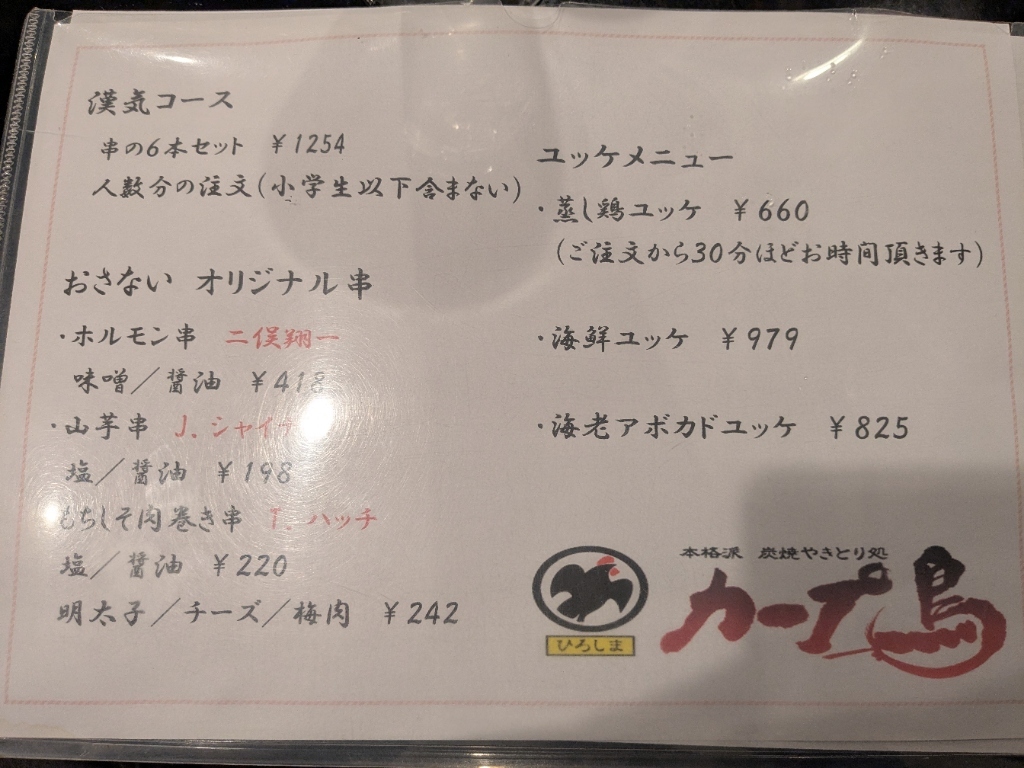 漢気コース
串の6本セット ¥1254
人数分の注文(小学生以下含まない)
おさない オリジナル串
・ホルモン串 二俣翔一
味噌/醤油 ¥418
・山芋串 J.シャイナー
塩/醤油 ¥198
もちしそ肉巻き串 T.ハッチ
塩/醤油 ¥220
明太子/チーズ/梅肉 ¥242
ユッケメニュー
・蒸し鶏ユッケ ¥660
(ご注文から30分ほどお時間頂きます)
・海鮮ユッケ ¥979
・海老アボカドユッケ ¥825
ひろしま
本格派 炭焼やきとり処
カープ鳥